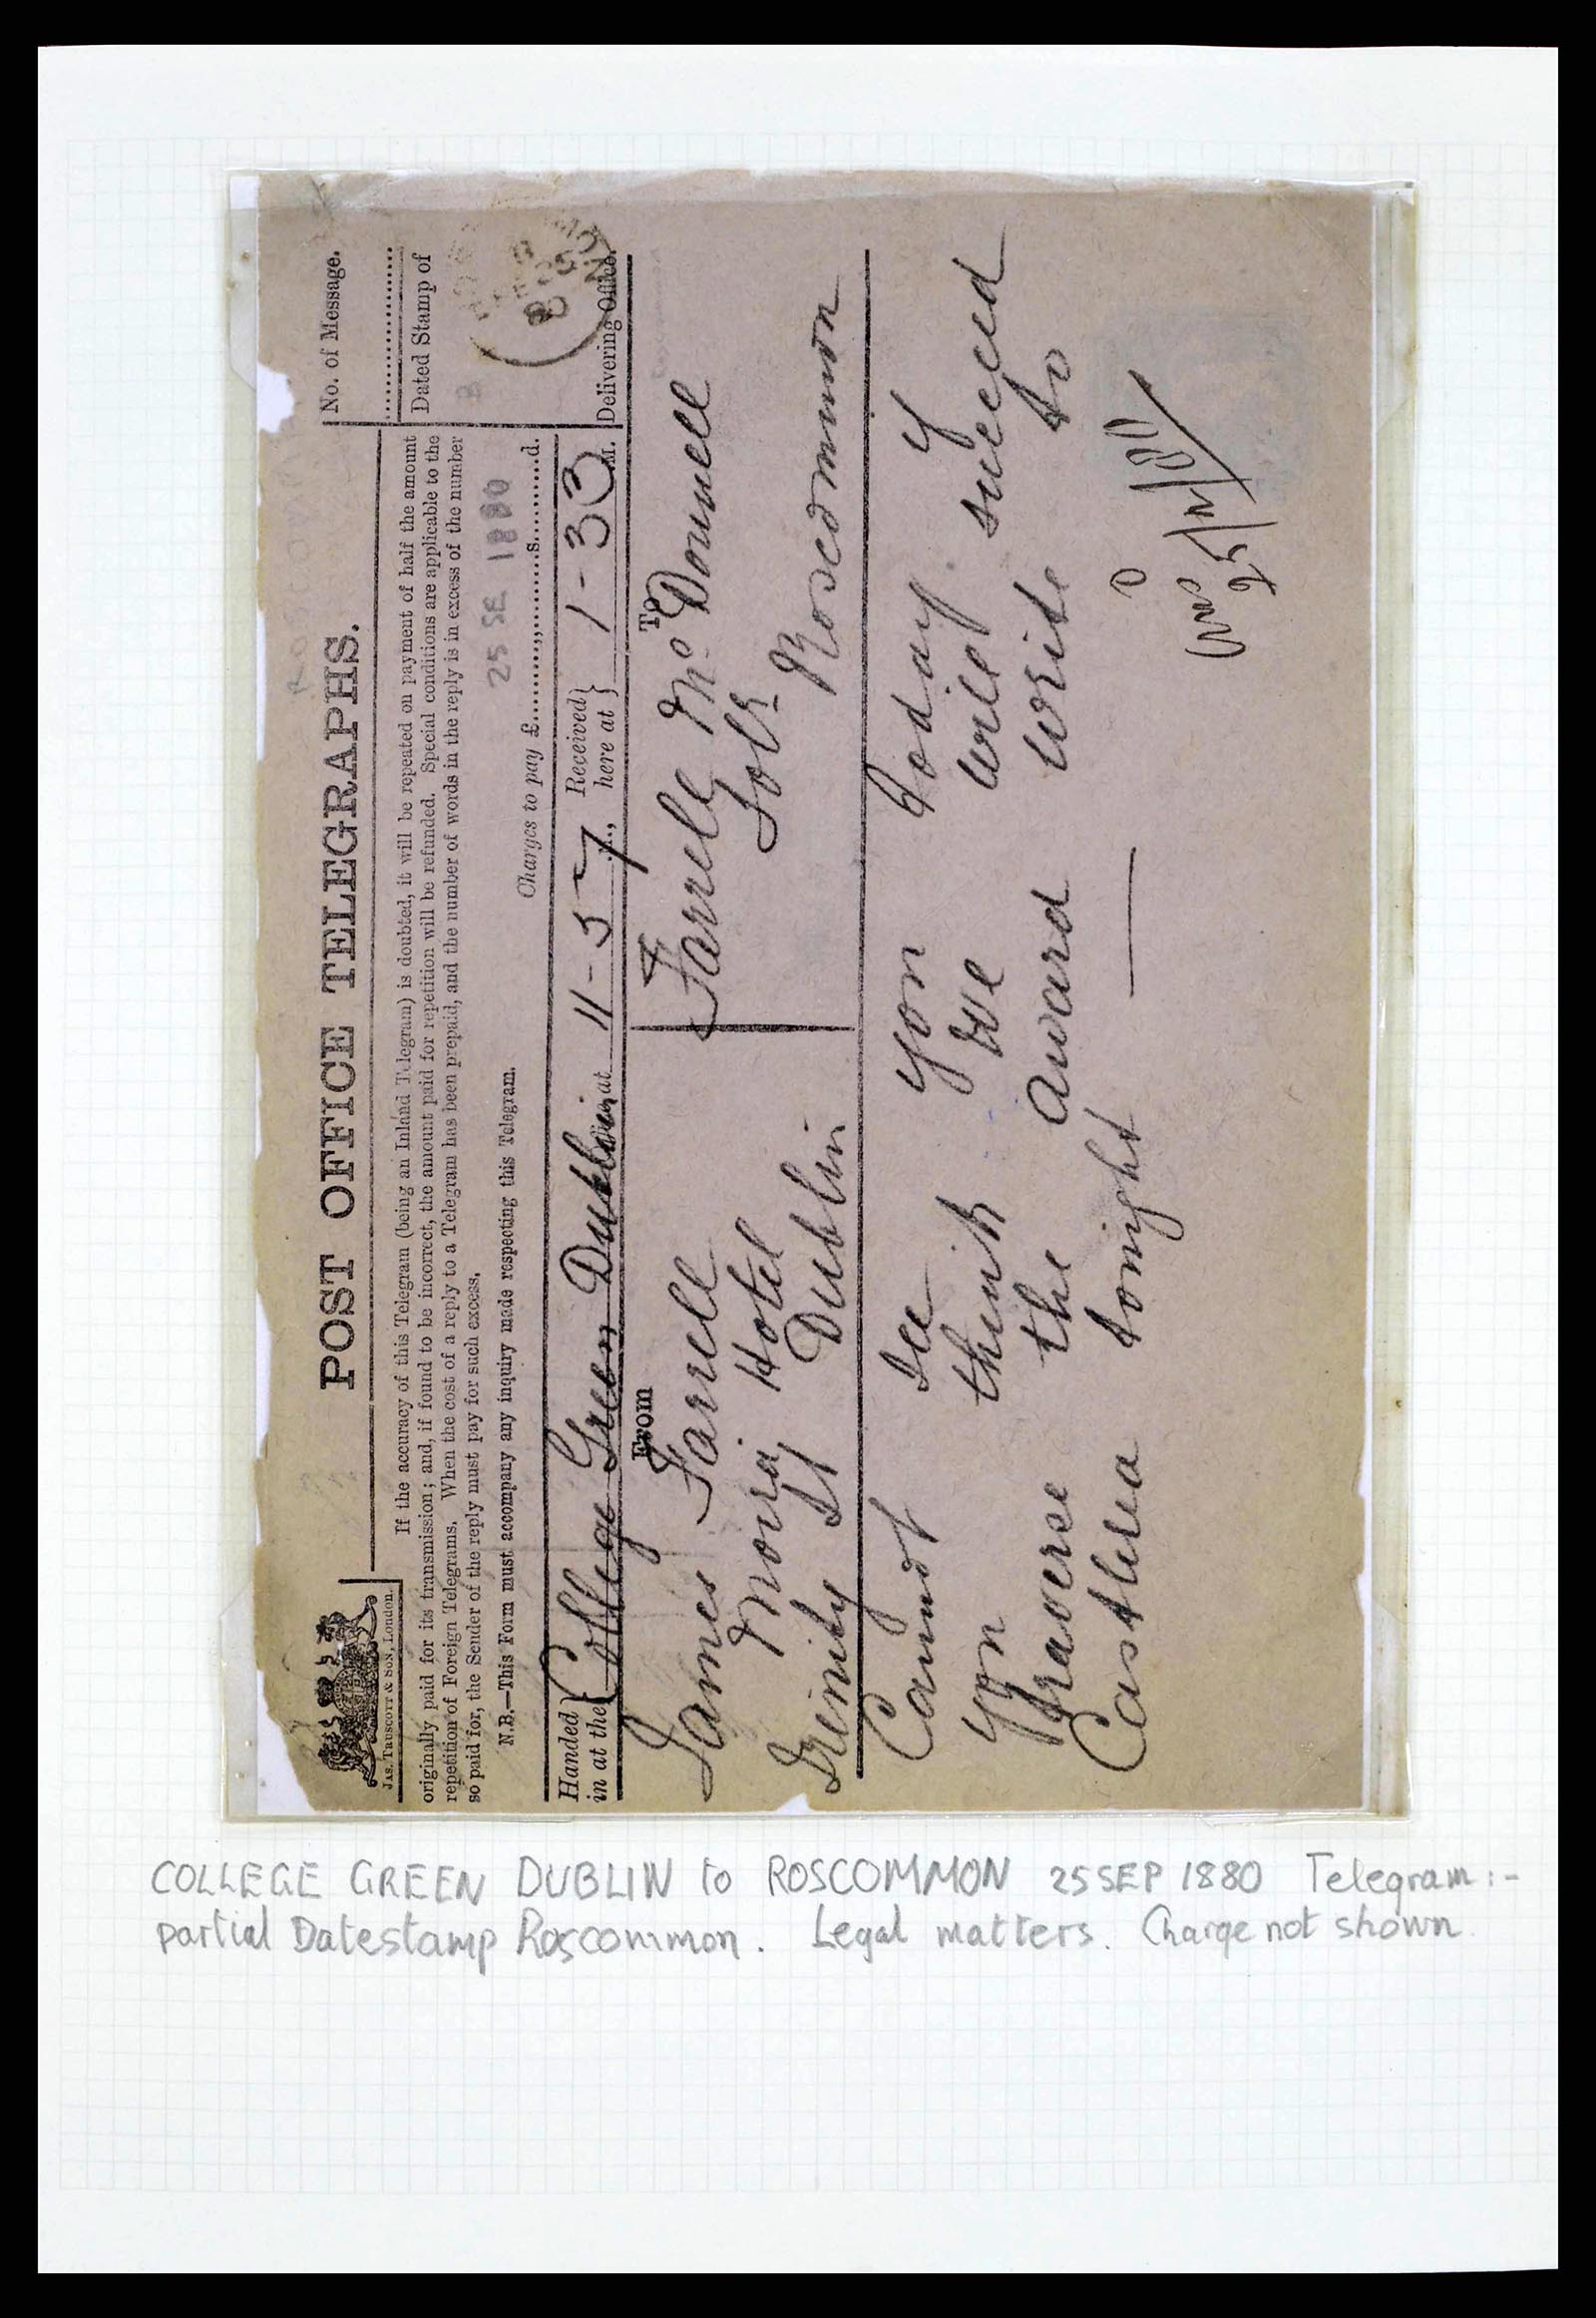 POST OFFICE TELEGRAPHS.
No. of Message.
JAS. TRUSCOTT & SON, London.
If the accuracy of this Telegram (being an Inland Telegram) is doubted, it will be repeated on payment of half the amount
originally paid for its transmission; and, if found to be incorrect, the amount paid for repetition will be refunded. Special conditions are applicable to the
repetition of Foreign Telegrams. When the cost of a reply to a Telegram has been prepaid, and the number of words in the reply is in excess of the number
so paid for, the Sender of the reply must pay for such excess.
N.B.—This Form must accompany any inquiry made respecting this Telegram.
Dated Stamp of
25 SE 1880
Charges to pay £ s. d.
Handed in at the College Green Dublin at 11-57 Received here at 1-33 M.
Delivering Office.
From
James Farrell
Moira Hotel
Trinity St Dublin
To
Farrell McDonnell
Solr
Roscommon
Cannot see you today if
you think we will succeed
traverse the award write to
Castlerea tonight
25/9/80
COLLEGE GREEN DUBLIN to ROSCOMMON 25 SEP 1880 Telegram:-
partial Datestamp Roscommon. Legal matters. Charge not shown.